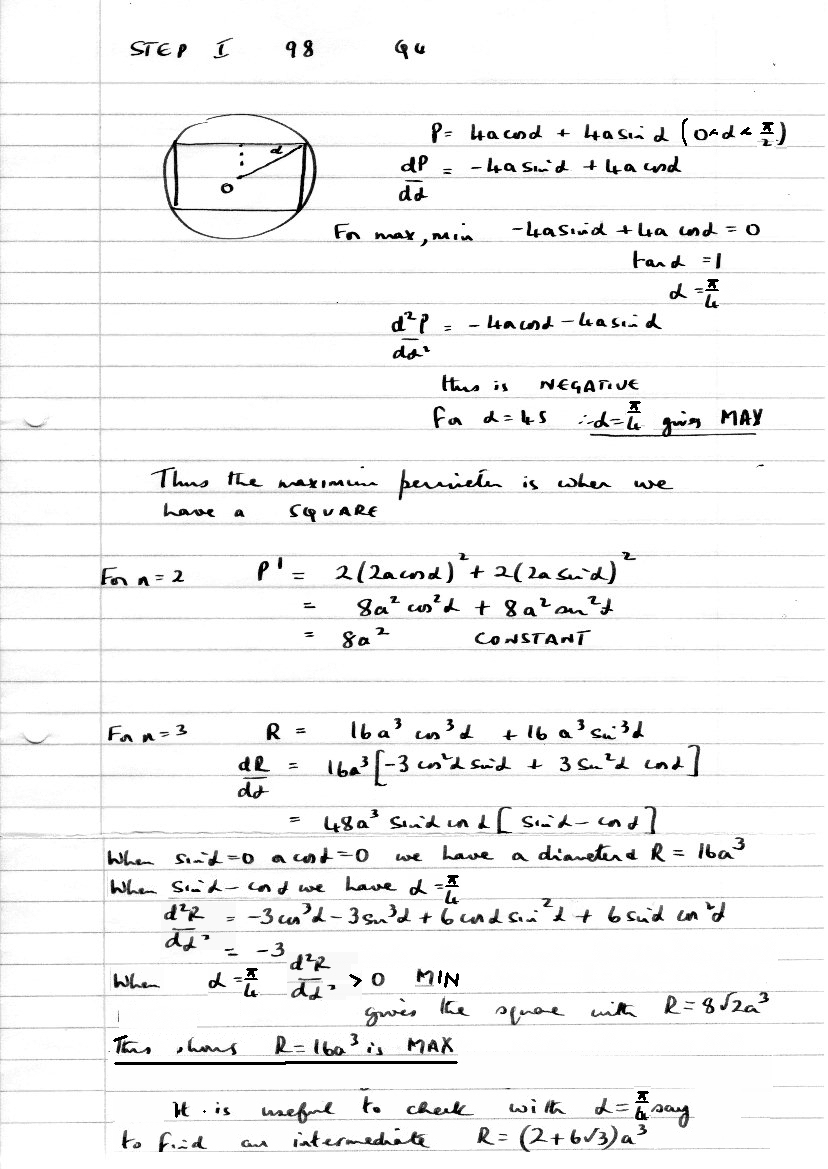 STEP I 98 Q4
P = 4a cos α + 4a sin α (0 < α < π/2)
α
O
dP/dα = -4a sin α + 4a cos α
For max, min -4a sin α + 4a cos α = 0
tan α = 1
α = π/4
d²P/dα² = -4a cos α - 4a sin α
this is NEGATIVE
for α = 45 ∴ α = π/4 gives MAX
Thus the maximum perimeter is when we
have a SQUARE
For n = 2 P' = 2(2a cos α)² + 2(2a sin α)²
= 8a² cos² α + 8a² sin² α
= 8a² CONSTANT
For n = 3 R = 16a³ cos³ α + 16a³ sin³ α
dR/dα = 16a³ [-3 cos² α sin α + 3 sin² α cos α]
= 48a³ sin α cos α [sin α - cos α]
When sin α = 0 or cos α = 0 we have a diameter & R = 16a³
When sin α - cos α we have α = π/4
d²R/dα² = -3 cos³ α - 3 sin³ α + 6 cos α sin² α + 6 sin α cos² α
= -3
When α = π/4 d²R/dα² > 0 MIN
gives the square with R = 8√2a³
This shows R = 16a³ is MAX
It is useful to check with α = π/6 say
to find an intermediate R = (2 + 6√3)a³